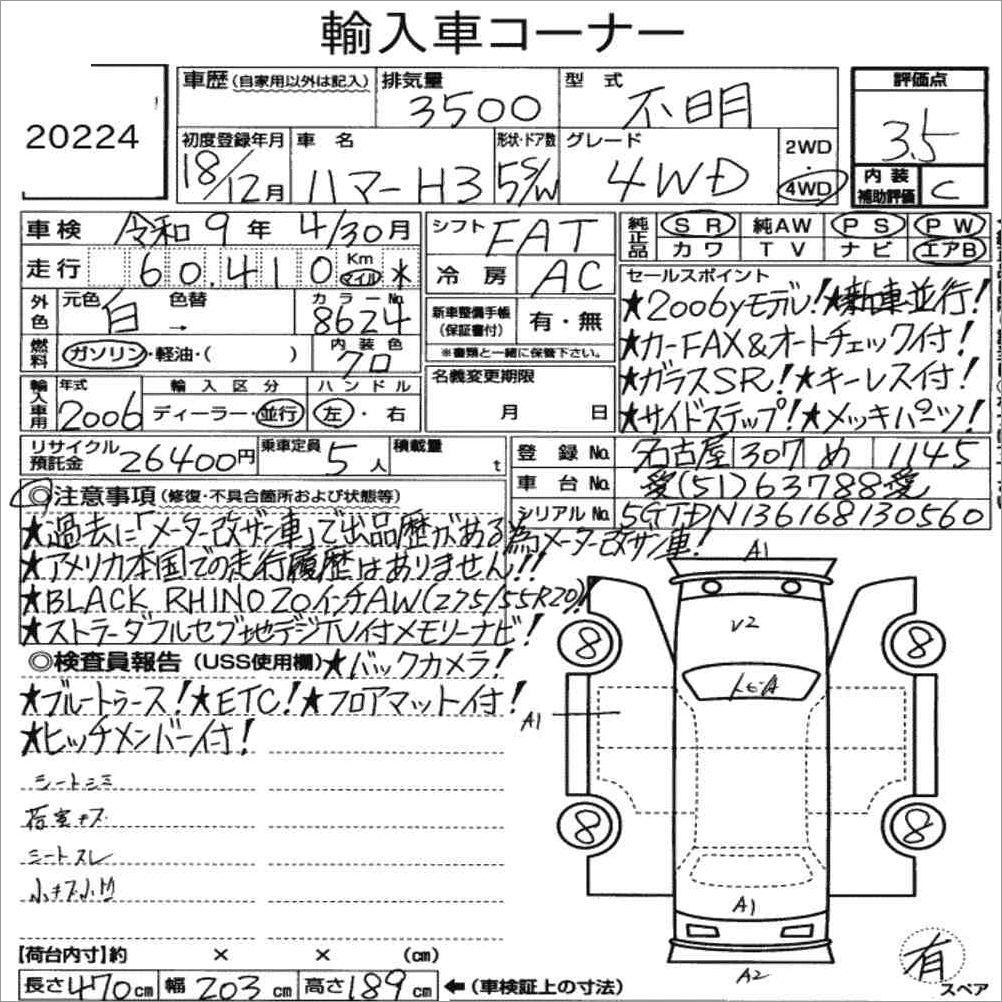 輸入車コーナー
20224
車歴(自家用以外は記入)
排気量 3500
型式 不明
評価点 3.5
初度登録年月 18/12月
車名 ハマーH3
形状・ドア数 5 S/W
グレード 4WD
2WD・4WD
内装補助評価 C
車検 令和9年4/30月
走行 60,410 Km マイル *
シフト FAT
冷房 AC
純正品 SR 純AW PS PW
カワ TV ナビ エアB
外色 元色 白 色替 → カラーNo. 8624
燃料 ガソリン・軽油・( ) 内装色 クロ
新車整備手帳(保証書付) 有・無
※書類と一緒に保管下さい。
セールスポイント
★2006yモデル!★新車並行!
★カーFAX&オートチェック付!
★ガラスSR!★キーレス付!
★サイドステップ!★メッキパーツ!
輸入車用 年式 2006 輸入区分 ディーラー・並行 ハンドル 左・右
名義変更期限 月 日
リサイクル預託金 26400円 乗車定員 5人 積載量 t
登録No. 名古屋 307 め 1145
車台No. 愛(51)63788愛
シリアルNo. 5GTDN136168130560
◎注意事項(修復・不具合箇所および状態等)
★過去に「メーター改ザン車」で出品歴がある為メーター改ザン車!
★アメリカ本国での走行履歴はありません!!
★BLACK RHINO20インチAW(275/55R20)!
★ストラーダフルセブ地デジTV付メモリーナビ!
◎検査員報告(USS使用欄)★バックカメラ!
★ブルートゥース!★ETC!★フロアマット付!
★ヒッチメンバー付!
シートシミ
荷室キズ
シートスレ
小キズ小凹
A1
V2
8
8
A1
8
8
A1
A2
有
スペア
【荷台内寸】約 × × (cm)
長さ470cm 幅203cm 高さ189cm ←(車検証上の寸法)